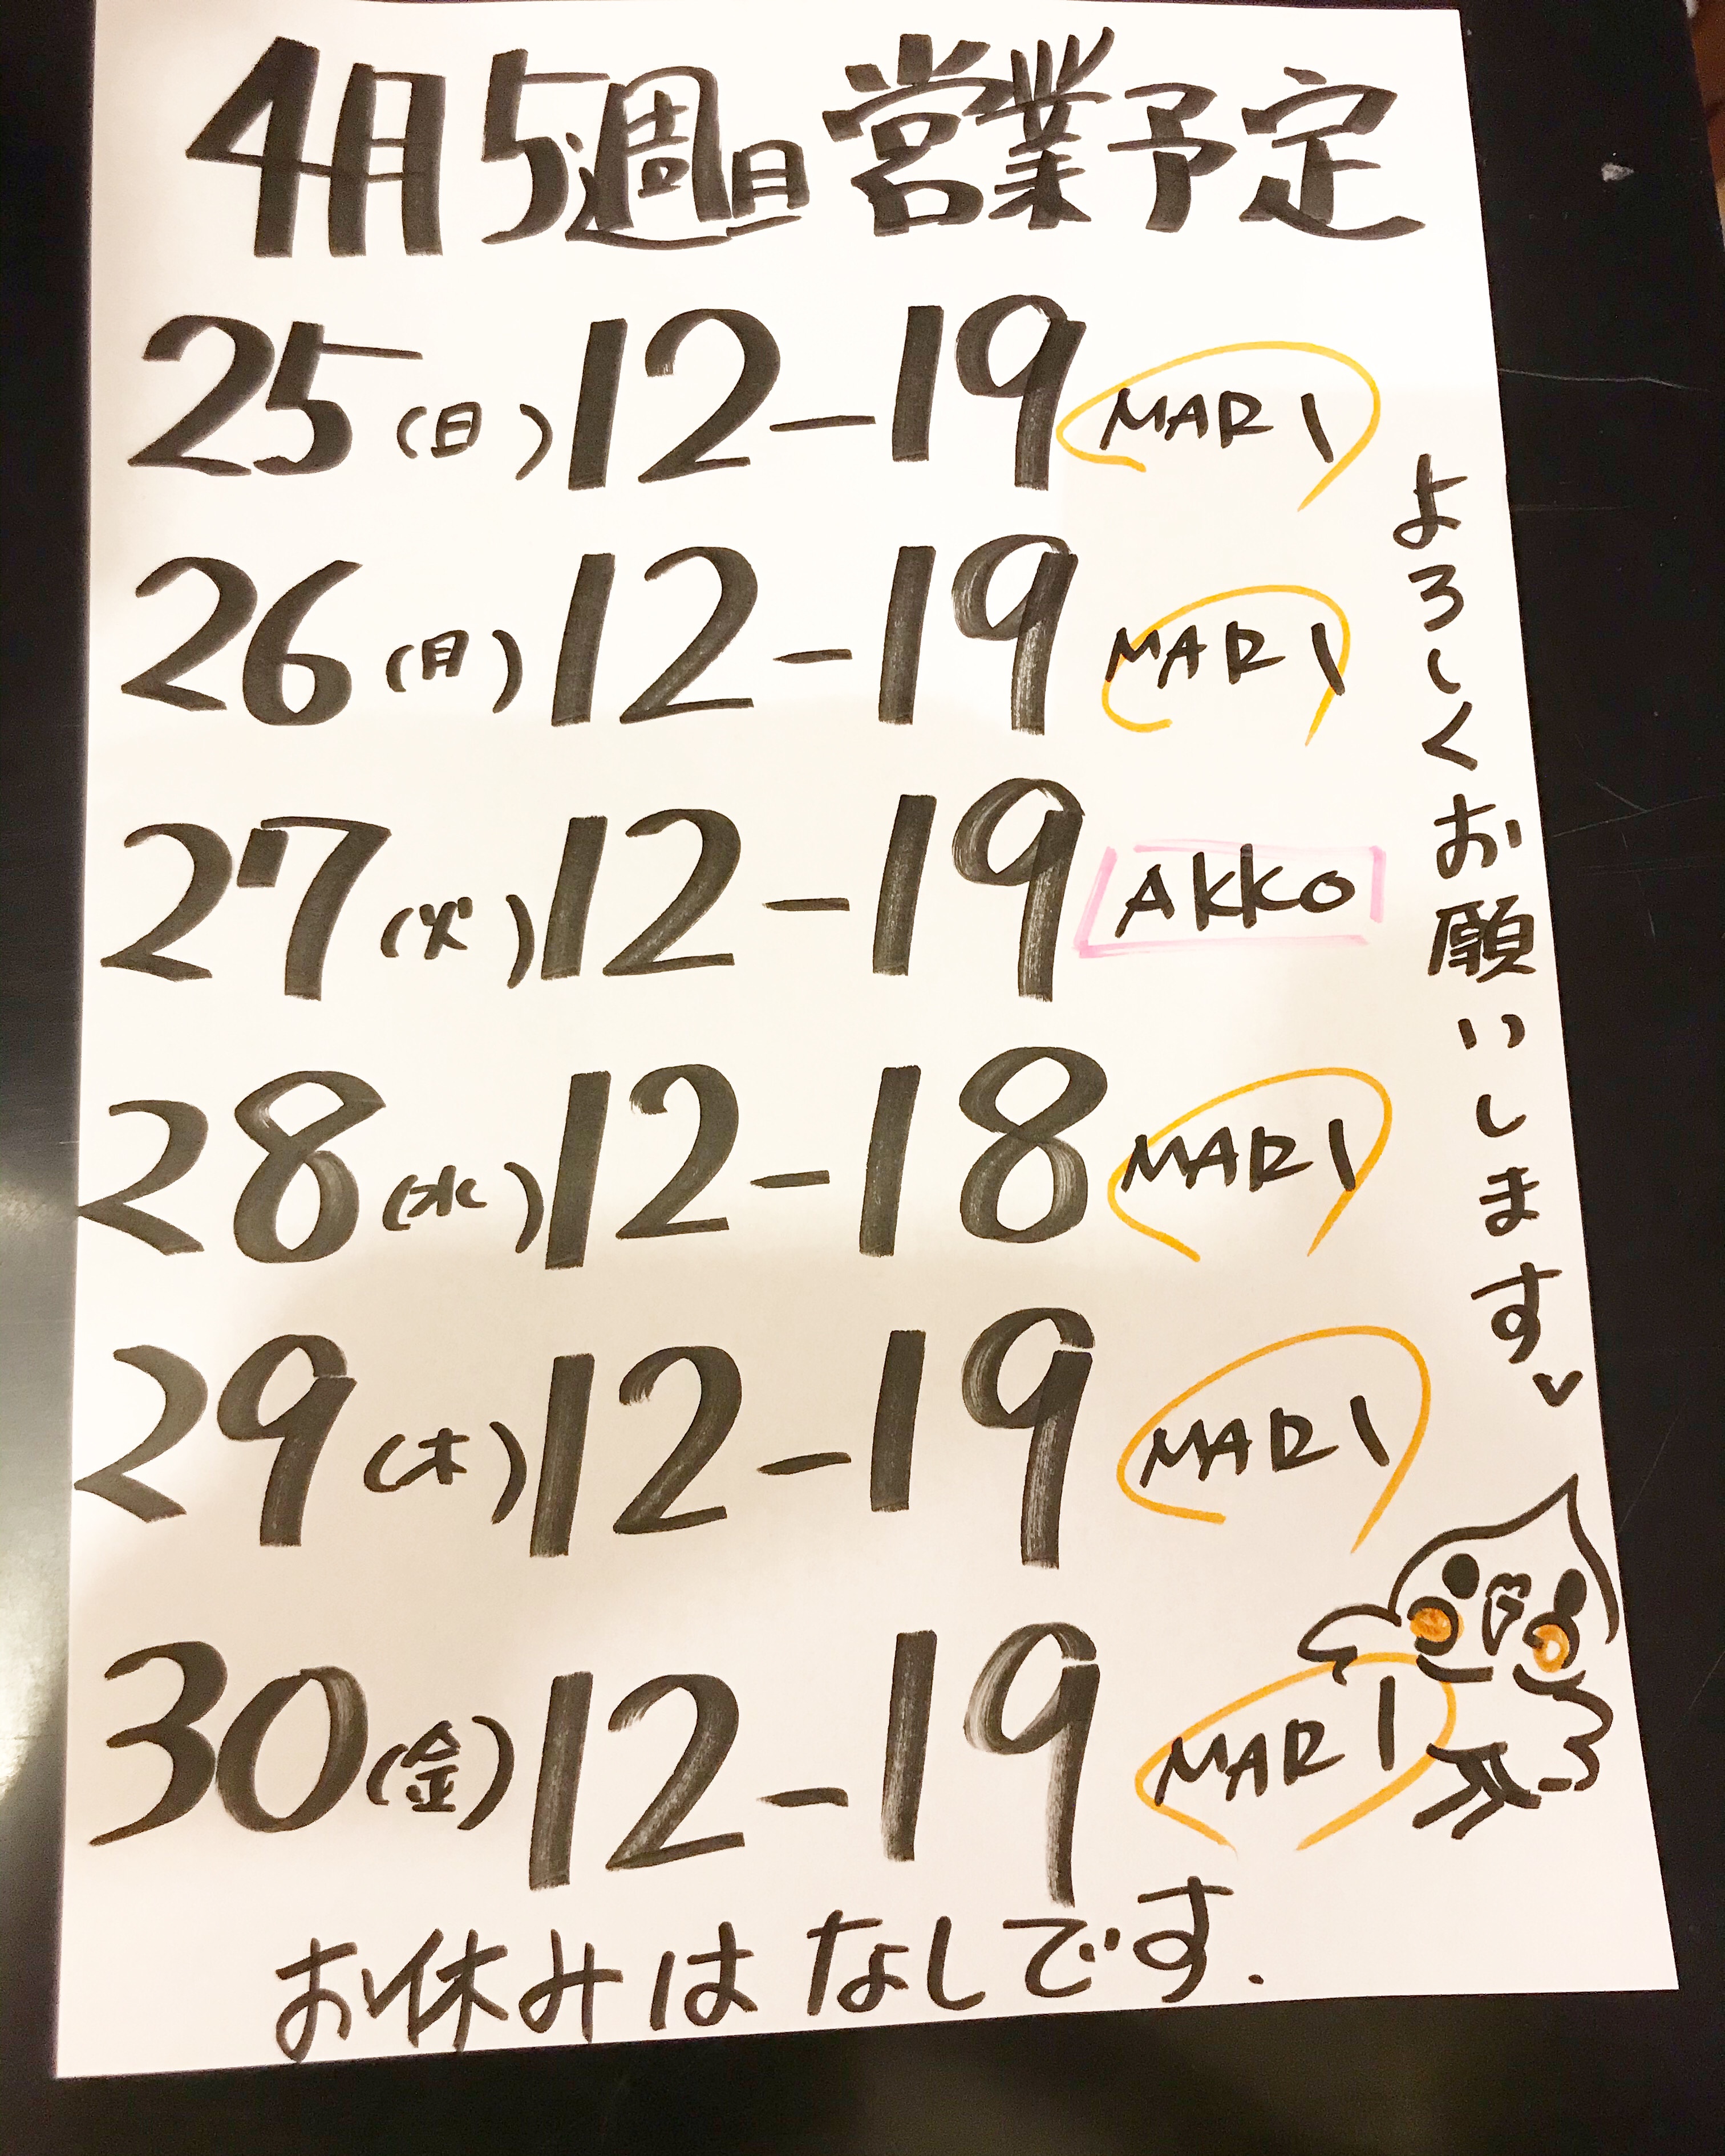 4月5週目営業予定
25(日)12-19 MARI
26(月)12-19 MARI
27(火)12-19 AKKO
28(水)12-18 MARI
29(木)12-19 MARI
30(金)12-19 MARI
お休みはなしです.
よろしくお願いします